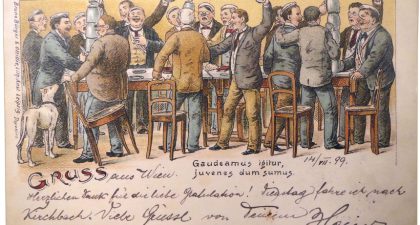 Gaudeamus igitur,
juvenes dum sumus.
14/VII. 99.
GRUSS aus Wien.
Herzlichen Dank für die liebe Gratulation! Dienstag fahre ich nach
Kirchbach. Viele Grüsse von